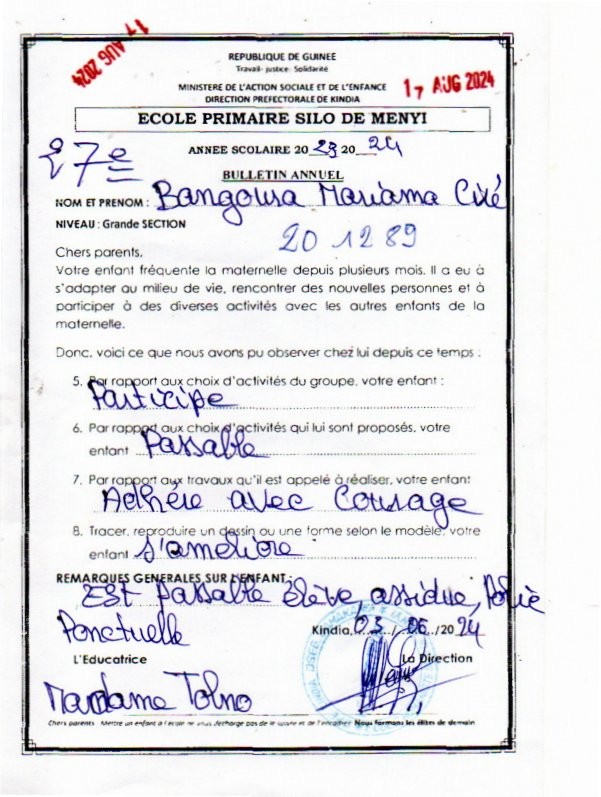 17 AUG 2024
REPUBLIQUE DE GUINEE
Travail- justice- Solidarité
MINISTERE DE L'ACTION SOCIALE ET DE L'ENFANCE
17 AUG 2024
DIRECTION PREFECTORALE DE KINDIA
ECOLE PRIMAIRE SILO DE MENYI
ANNEE SCOLAIRE 2023 2024
27e
BULLETIN ANNUEL
NOM ET PRENOM : Bangoura Mariama Ciré
NIVEAU : Grande SECTION
20 12 89
Chers parents,
Votre enfant fréquente la maternelle depuis plusieurs mois. Il a eu à
s'adapter au milieu de vie, rencontrer des nouvelles personnes et à
participer à des diverses activités avec les autres enfants de la
maternelle.
Donc, voici ce que nous avons pu observer chez lui depuis ce temps :
5. Par rapport aux choix d'activités du groupe, votre enfant :
Participe
6. Par rapport aux choix d'activités qui lui sont proposés, votre
enfant Passable
7. Par rapport aux travaux qu'il est appelé à réaliser, votre enfant
Adhère avec Courage
8. Tracer, reproduire un dessin ou une forme selon le modèle, votre
enfant s'améliore
REMARQUES GENERALES SUR L'ENFANT :
Est passable élève, assidue, Polie
Ponctuelle
Kindia, 03/06/2024
L'Educatrice
La Direction
Madame Tolno
Chers parents Mettre un enfant à l'école ne vous décharge pas de le suivre et de l'encadrer Nous formons les élites de demain